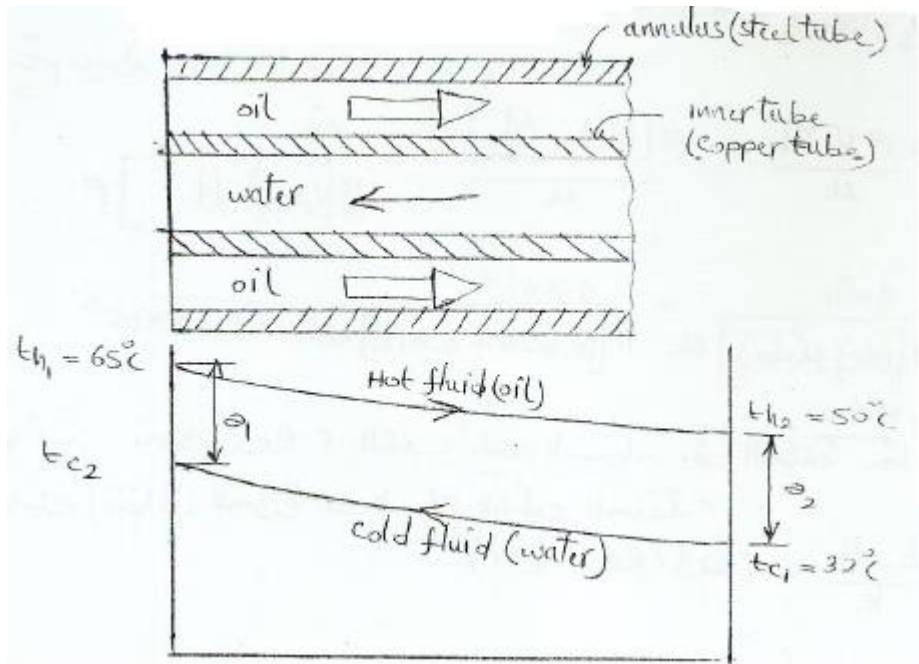 annulus (steel tube)
oil
inner tube
(copper tube)
water
oil
th₁ = 65°C
Hot fluid (oil)
th₂ = 50°C
θ₁
tc₂
θ₂
cold fluid (water)
tc₁ =